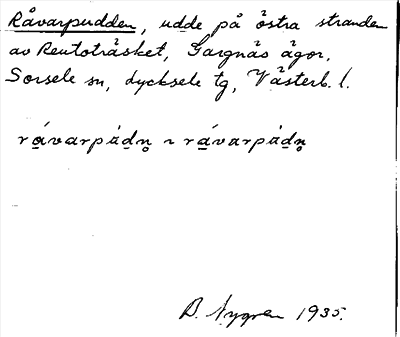 Råvarpudden, udde på östra stranden
av Reutoträsket, Gargnäs ägor,
Sorsele sn, Lycksele tg, Västerb. l.
rávarpádn̥ ~ rávarpádn̥
B. Nygren 1935.